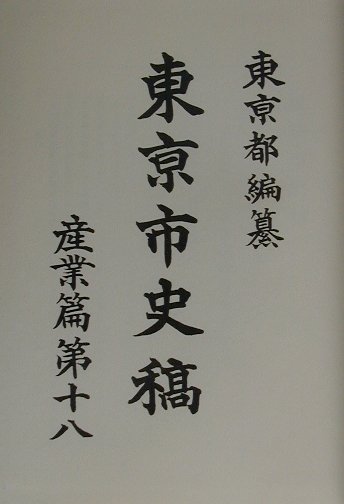 東亰都編纂
東亰市史稿
産業篇第十八